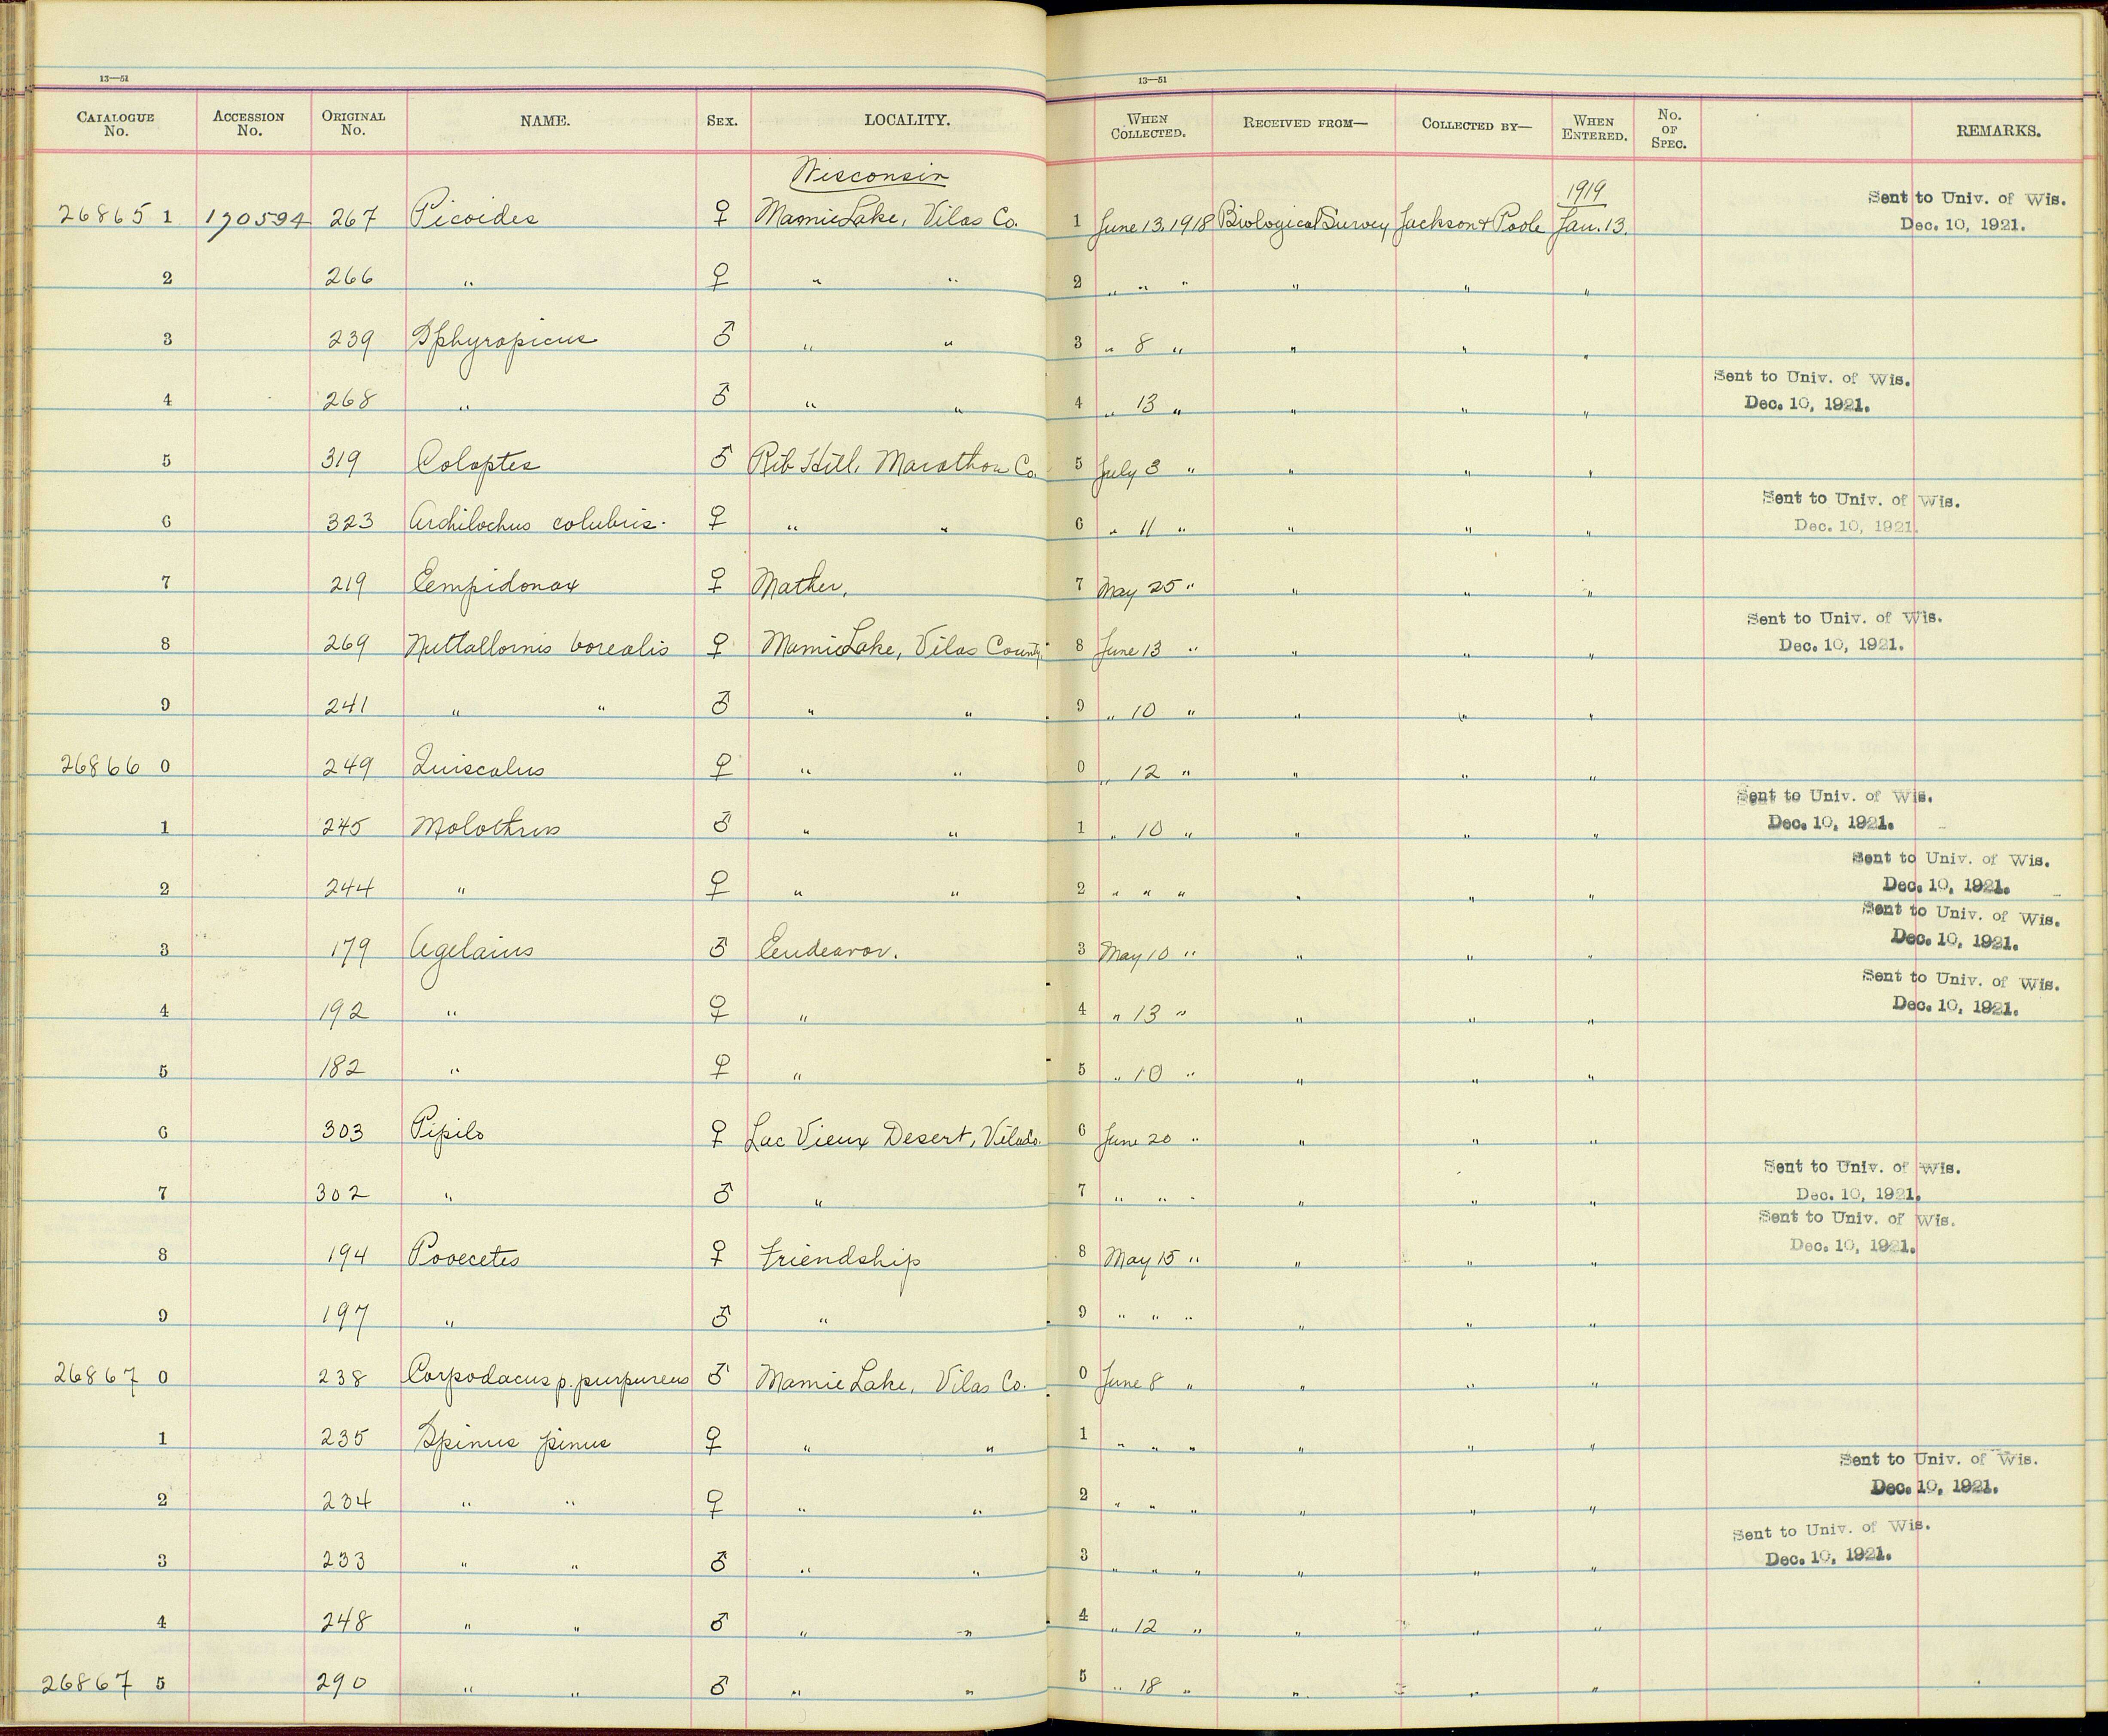 13—51 13—51
CATALOGUE No. ACCESSION No. ORIGINAL No. NAME. SEX. LOCALITY. WHEN COLLECTED. RECEIVED FROM— COLLECTED BY— WHEN ENTERED. No. OF SPEC. REMARKS.
Wisconsin
1919
26865 1 170594 267 Picoides ♀ Mamie Lake, Vilas Co. 1 June 13, 1918 Biological Survey Jackson & Poole Jan. 13. Sent to Univ. of Wis. Dec. 10, 1921.
2 266 " ♀ " " 2 " " " " " "
3 239 Sphyrapicus ♂ " " 3 " 8 " " " "
4 268 " ♂ " " 4 " 13 " " " " Sent to Univ. of Wis. Dec. 10, 1921.
5 319 Colaptes ♂ Rib Hill, Marathon Co. 5 July 3 " " " "
6 323 Archilochus colubris. ♀ " " 6 " 11 " " " " Sent to Univ. of Wis. Dec. 10, 1921.
7 219 Eempidonax ♀ Mather, 7 May 25 " " " "
8 269 Nuttallornis borealis ♀ Mamie Lake, Vilas County. 8 June 13 " " " " Sent to Univ. of Wis. Dec. 10, 1921.
9 241 " " ♂ " " 9 " 10 " " " "
26866 0 249 Quiscalus ♀ " " 0 " 12 " " " "
1 245 Molothrus ♂ " " 1 " 10 " " " " Sent to Univ. of Wis. Dec. 10, 1921.
2 244 " ♀ " " 2 " " " " " " Sent to Univ. of Wis. Dec. 10, 1921.
3 179 Agelaius ♂ Endeavor. 3 May 10 " " " " Sent to Univ. of Wis. Dec. 10, 1921.
4 192 " ♀ " 4 " 13 " " " " Sent to Univ. of Wis. Dec. 10, 1921.
5 182 " ♀ " 5 " 10 " " " "
6 303 Pipilo ♀ Lac Vieux Desert, Vilas Co. 6 June 20 " " " "
7 302 " ♂ " 7 " " " " " " Sent to Univ. of Wis. Dec. 10, 1921.
8 194 Pooecetes ♀ Friendship 8 May 15 " " " " Sent to Univ. of Wis. Dec. 10, 1921.
9 197 " ♂ " 9 " " " " " "
26867 0 238 Carpodacus p. purpureus ♂ Mamie Lake, Vilas Co. 0 June 8 " " " "
1 235 Spinus pinus ♀ " " 1 " " " " " "
2 234 " " ♀ " " 2 " " " " " " Sent to Univ. of Wis. Dec. 10, 1921.
3 233 " " ♂ " " 3 " " " " " " Sent to Univ. of Wis. Dec. 10, 1921.
4 248 " " ♂ " " 4 " 12 " " " "
26867 5 290 " " ♂ " " 5 " 18 " " " "